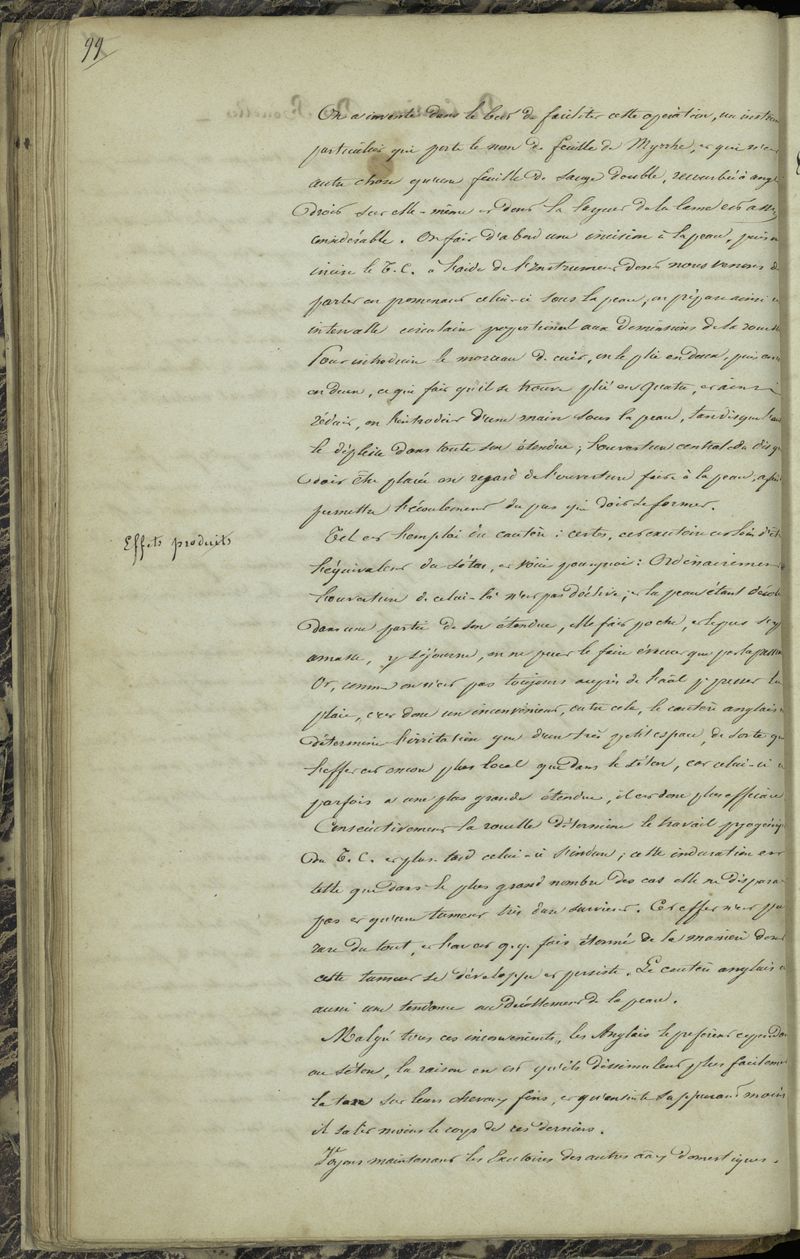 99
On a inventé dans le but de faciliter cette opération, un instrum
particulier qui porte le nom de feuille de Myrrhe, et qui n'est
autre chose qu'une feuille de sauge double, recourbée à angle
droit sur elle-même et dont la largeur de la lame est assez
considérable. On fait d'abord une incision à la peau, puis on
incise le T.C. à l'aide de l'instrument dont nous venons de
parler en promenant celui-ci sous la peau, on prépare ainsi un
intervalle circulaire proportionnel aux dimensions de la rouelle
Pour introduire le morceau de cuir, on le plie en deux, puis encore
en deux, ce qui fait qu'il se trouve plié en quatre, et ainsi
réduit, on l'introduit d'une main sous la peau, tandis que l'autre
le déploie dans toute son étendue ; l'ouverture centrale du disque
doit être placée en regard de l'ouverture faite à la peau, afin
permettre l'écoulement du pus qui doit se former.
Effets produits
Tel est l'emploi du cautère : certes, cet exutoire est loin d'être
l'équivalent du séton, et voici pourquoi : Ordinairement
l'ouverture de celui-là n'est pas déclive ; et la peau étant décollée
dans une partie de son étendue, elle fait poche, et le pus s'y
amasse, y séjourne, on ne peut le faire évacuer que par la pression
Or, comme on n'est pas toujours auprès de l'aâl pr presser la
plaie, c'est donc un inconvénient, outre cela, le cautère anglais ne
détermine l'irritation que d'un très petit espace, de sorte que
l'effet est encore plus local que dans le séton, car celui-ci a
parfois a une plus grande étendue, il est donc plus efficace
Consécutivement la rouelle détermine le travail pyogénique
du T.C. et plus tard celui-ci s'indure ; cette induration est
telle que dans le plus grand nombre des cas elle ne disparait
pas et qu'une tumeur très dure survient. Cet effet n'est pas
rare du tout, et l'on est q.q. fois étonné de la manière dont
cette tumeur se développe et persiste. Le cautère anglais a
aussi une tendance au décollement de la peau.
Malgré tous ces inconvénients, les Anglais le préfèrent cependant
au séton, la raison en est qu'ils dissimulent plus facilement
la tare sur leurs chevaux fins, et qu'ensuite la moins
il salit moins le corps de ces derniers.
Voyons maintenant les Exutoires des autres aâux domestiques.